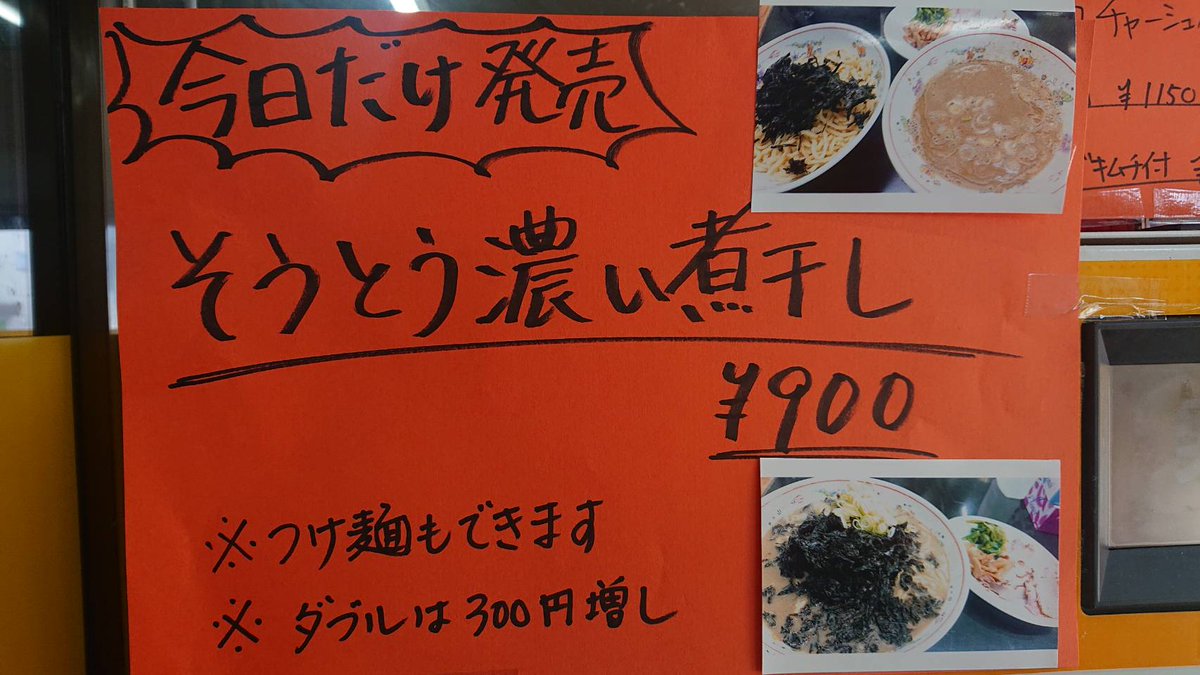 今日だけ発売
そうとう濃い煮干し
¥900
※つけ麺もできます
※ダブルは300円増し
チャーシュ
¥1150
キムチ付